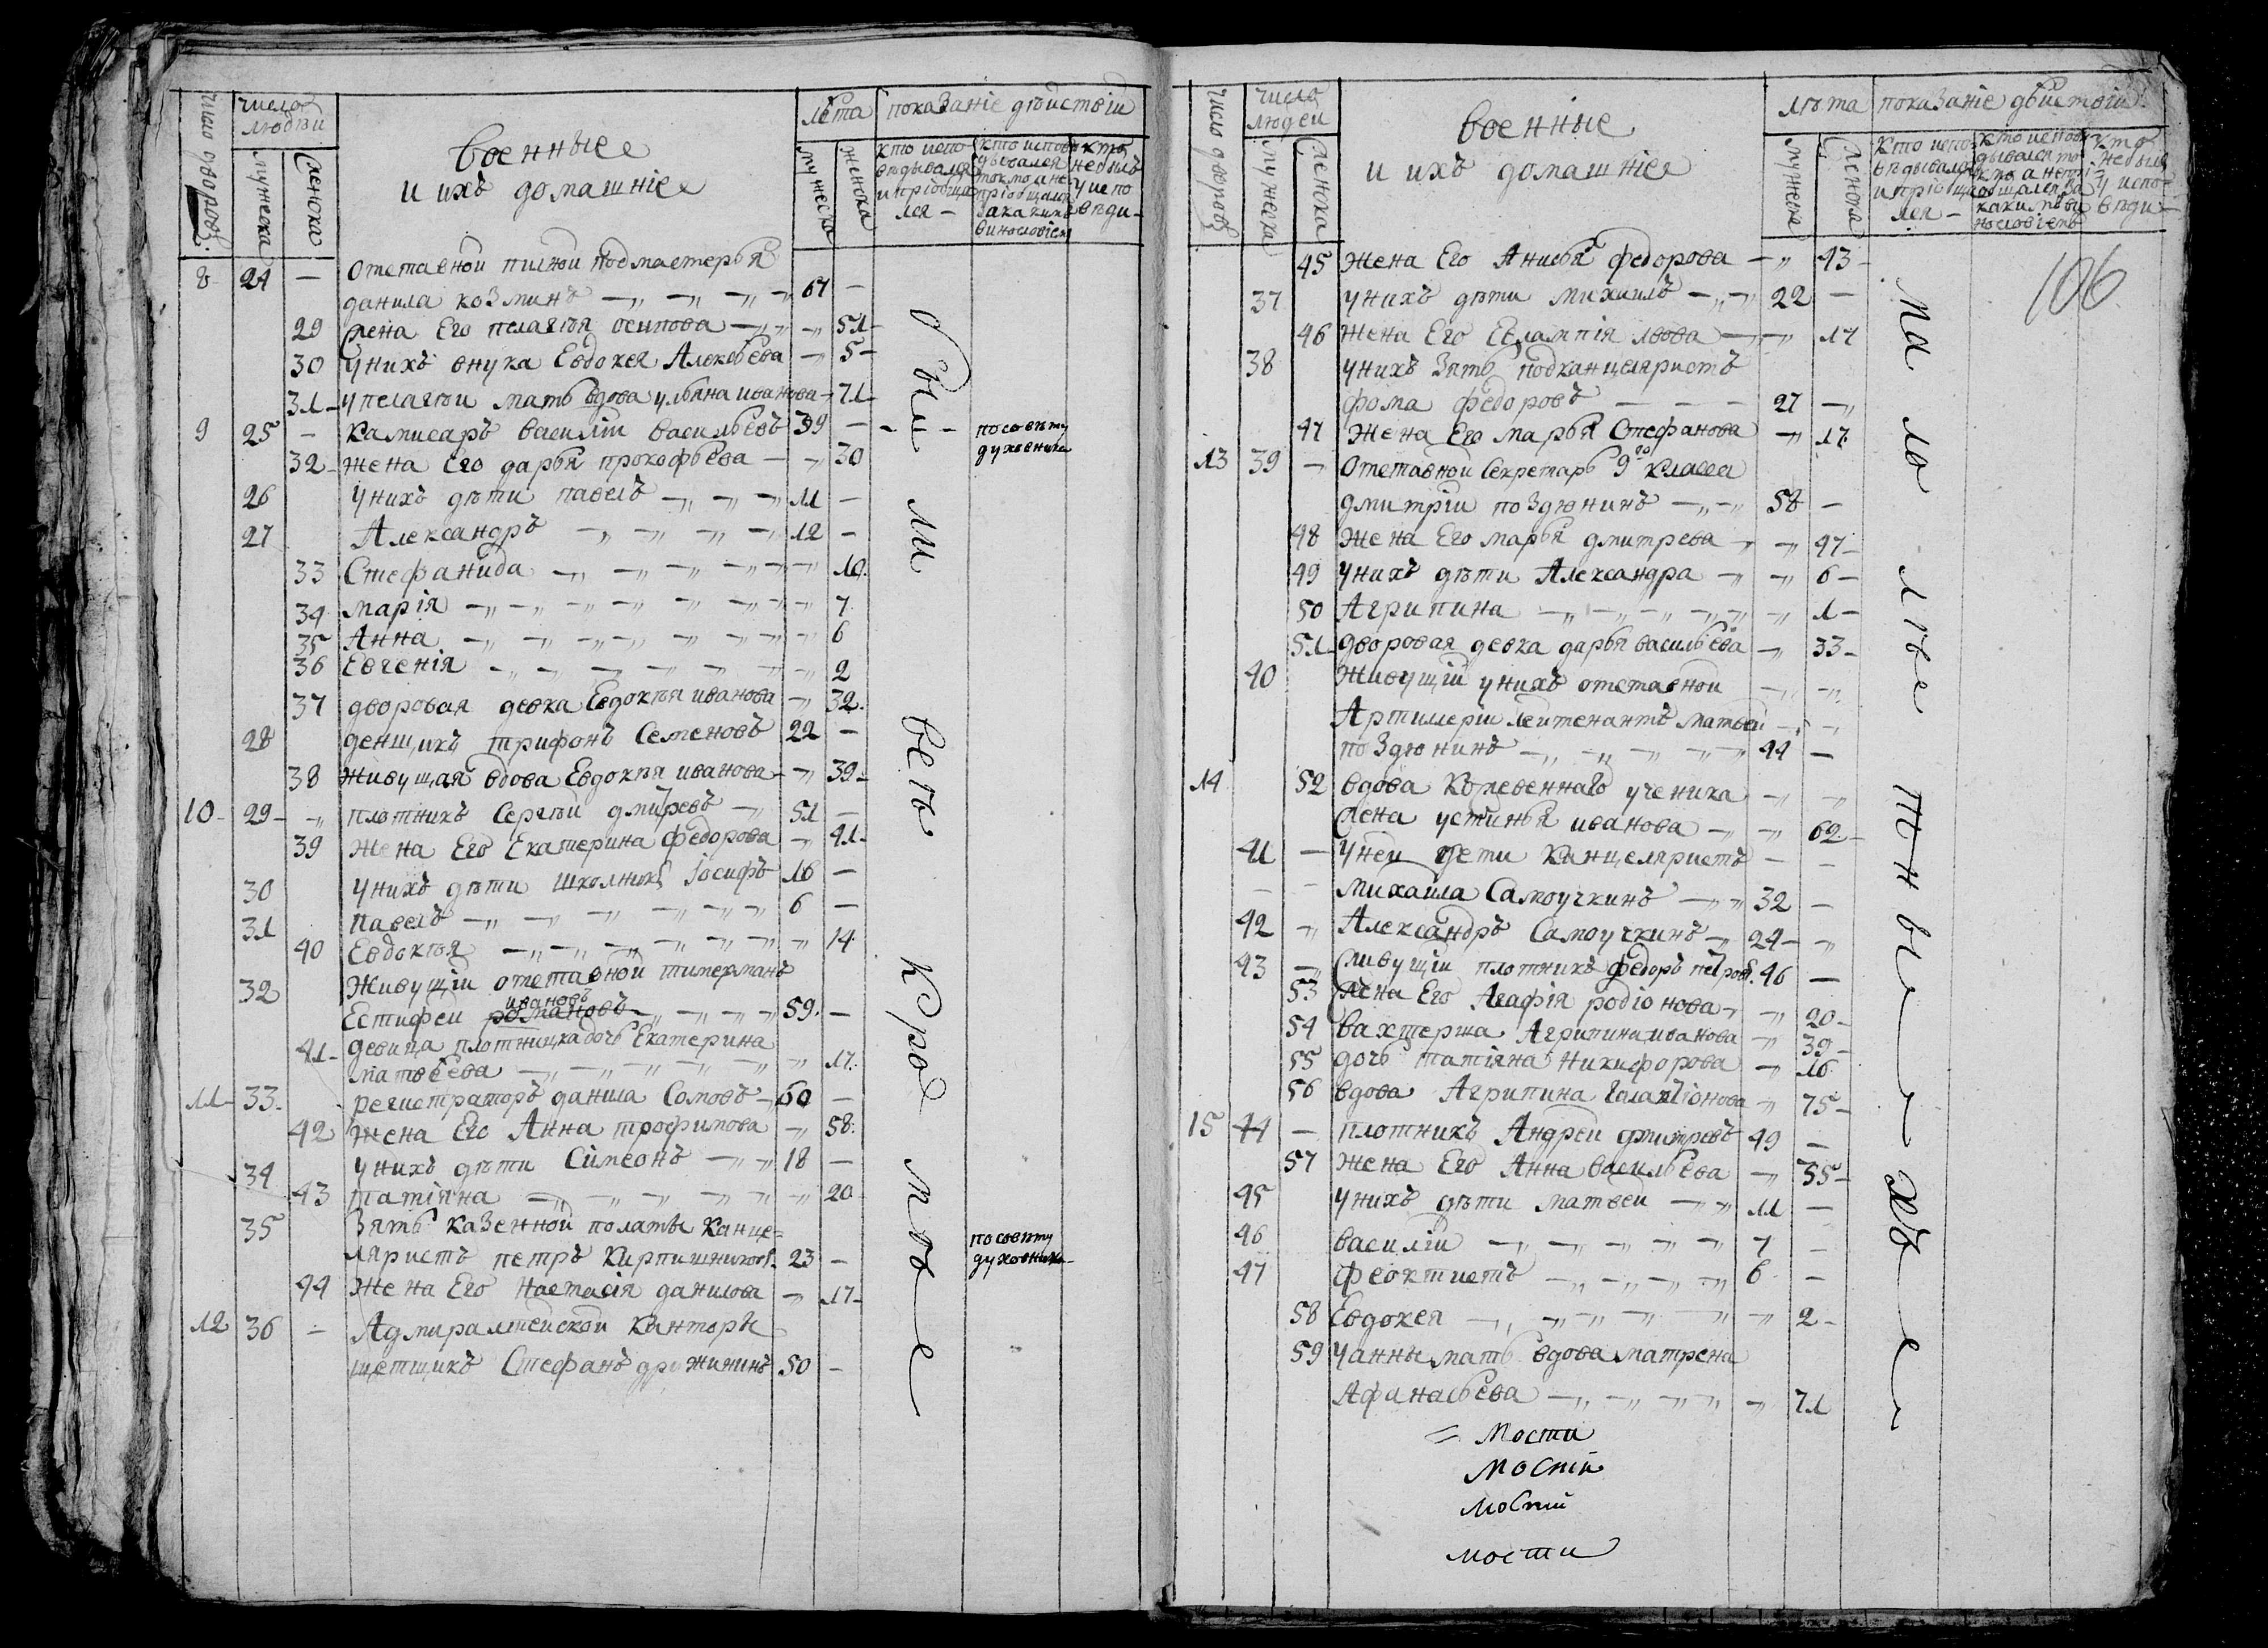 число дворовъ
число людѣи
мужеска
женска
военные
и ихъ домашние
лѣта
мужеска
женска
показаніе дѣиствіи
кто испо
вѣдывался
и пріобща
лся –
кто испов
дывался
токмо а не
пріобщалс
за какимъ
винословіем
кто
не былъ
у испо
вѣди –
8 24 – отставнои пилнои подмастерья
данила козминъ 67 –
29 жена Его пелагѣя осипова 51
30 у нихъ внука Евдокея Алексѣева 5
31 у пелагѣи мать вдова ульяна иванова 71
9 25 – камисаръ василіи васильевъ 39 – по совѣту
духовника
32 жена Его дарья прокофьева 30
26 у нихъ дѣти павелъ 11 –
27 Александръ 12 –
33 Стефанида 10
34 марія 7
35 Анна 6
36 Евгенія 2
37 дворовая девка Евдокѣя иванова 32
28 денщикъ трифонъ Семеновъ 22 –
38 живущая вдова Евдокѣя иванова 39
10 29 плотникъ Сергѣи дмитревъ 51 –
39 жена Его Екатерина федорова 41
30 у нихъ дѣти школникъ Іосифъ 16 –
31 павелъ 6 –
40 Евдокѣя 14
32 живущіи отставнои тимерманъ
ивановъ
Естифеи романовъ 59 –
41 девица плотницка дочь Екатерина
матвѣева 17
11 33 регистраторъ данила Сомовъ 60 –
42 жена Его Анна трофимова 58
34 у нихъ дѣти Симеонъ 18 –
43 татіяна 20
35 зять казеннои полаты канце=
ляристъ петръ Кирпишниковъ 23 – по совѣту
духовника
44 жена Его настасія данилова 17
12 36 – Адмиралтеискои канторы
щетщикъ Стефанъ дружининъ 50 –
о ни ми всѣ кро мѣ
число дворовъ
число людеи
мужеска
женска
военные
и ихъ домашнее
лѣта
мужеска
женска
показаніе дѣиствіи
кто испо
вѣдывалс
и пріобща
лся –
кто испов
дывался то
кмо а не прі
общался за
какимъ ви
нословіемъ
кто
не былъ
у испо
вѣди –
106
45 жена Его Анисья федорова 43
37 у нихъ дѣти михаилъ 22 –
46 жена Его Евлампія львова 17
38 у нихъ зять подканцеляристъ
фома федоровъ 27
47 жена Его марья Стефанова 17
13 39 отставнои Секретарь 9го класса
дмитріи поздюнинъ 58 –
48 жена Его марья дмитрева 47
49 у нихъ дѣти Александра 6
50 Агрипина 1
51 дворовая девка дарья васильева 33
40 живущіи у нихъ отставнои
Артиллеріи леитенантъ матвеи
поздюнинъ 44 –
14 52 вдова Кожевеннаго ученика
жена устинья иванова 62
41 – у неи дети канцеляристъ
михаила Самоучкинъ 32 –
42 Александръ Самоучкинъ 24
43 живущіи плотникъ федоръ петровъ 46 –
53 жена Его Агафія родіонова 20
54 вахтерша Агрипина иванова 39
55 дочь татіяна никифорова 16
56 вдова Агрипина Галактіонова 75
15 44 – плотникъ Андреи дмитревъ 49 –
57 жена Его Анна васильева 55
45 у нихъ дѣти матвеи 11 –
46 василіи 7 –
47 феоктистъ 6 –
58 Евдокея 2
59 у анны мать вдова матрена
Афанасьева 71
ма ло лѣ т ны хъ
= мости
мости
мостіи
мости